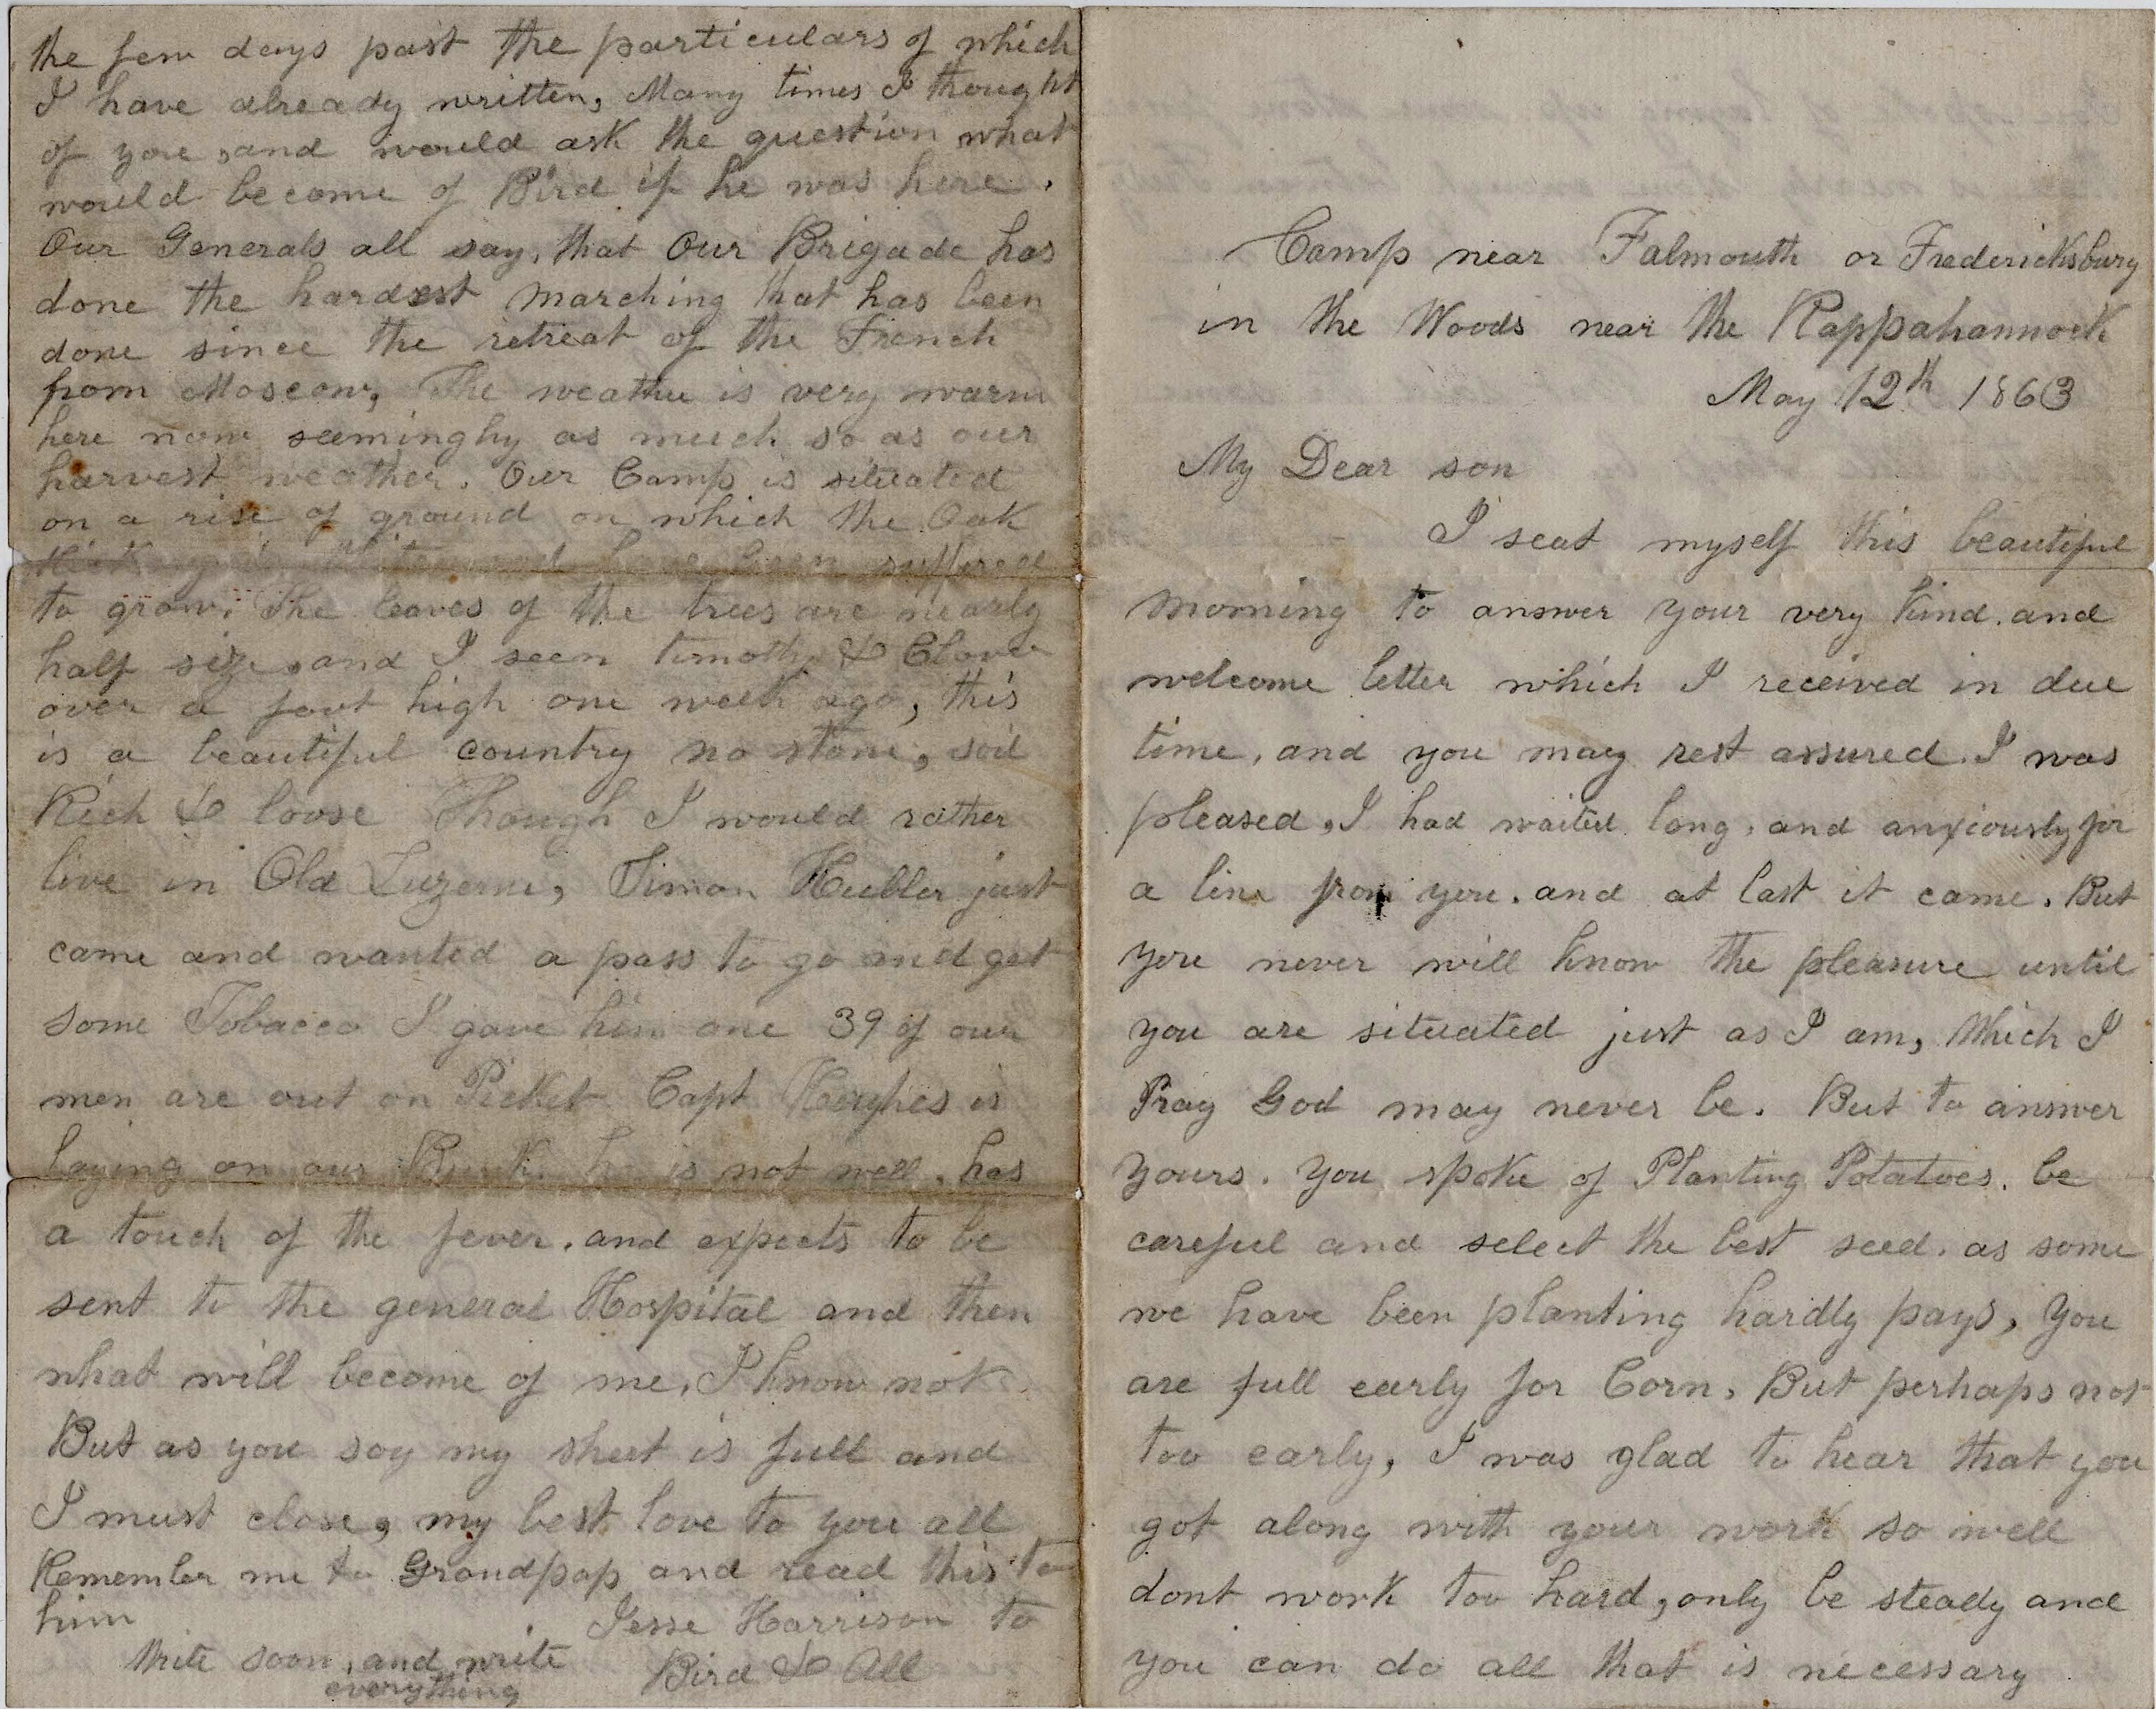 Camp near Falmouth or Fredericksburg
in the Woods near the Rappahannock
May 12th 1863
My Dear son
I seat myself this beautiful
morning to answer your very kind. and
welcome letter which I received in due
time, and you may rest assured. I was
pleased, I had waited long, and anxiously for
a line from you. and at last it came. But
you never will know the pleasure until
you are situated just as I am, Which I
Pray God may never be. But to answer
yours. You spoke of Planting Potatoes. be
careful and select the best seed. as some
we have been planting hardly pays, You
are full early for Corn, But perhaps not
too early, I was glad to hear that you
got along with your work so well
dont work too hard, only be steady and
you can do all that is necessary
the few days past the particulars of which
I have already written, Many times I thought
of you, and would ask the question what
would become of Bird if he was here.
Our Generals all say, that Our Brigade has
done the hardest marching that has been
done since the retreat of the French
from Moscow, The weather is very warm
here now seemingly as much so as our
harvest weather. Our Camp is situated
on a rise of ground on which the Oak
have been suffered
to grow. The leaves of the trees are nearly
half size, and I seen timothy & Clover
over a foot high one week ago, this
is a beautiful country no stone, soil
Rich & loose Though I would rather
live in Old Luzerne, Simon Hubler just
came and wanted a pass to go and get
some Tobacco I gave him one 39 of our
men are out on Picket Capt Hughes is
laying on our Bunk. he is not well. has
a touch of the fever. and expects to be
sent to the general Hospital and then
what will become of me, I know not.
But as you say my sheet is full and
I must close, my best love to you all
Remember me to Grandpap and read this to
him
Jesse Harrison to
Bird & All
Write soon, and write
everything